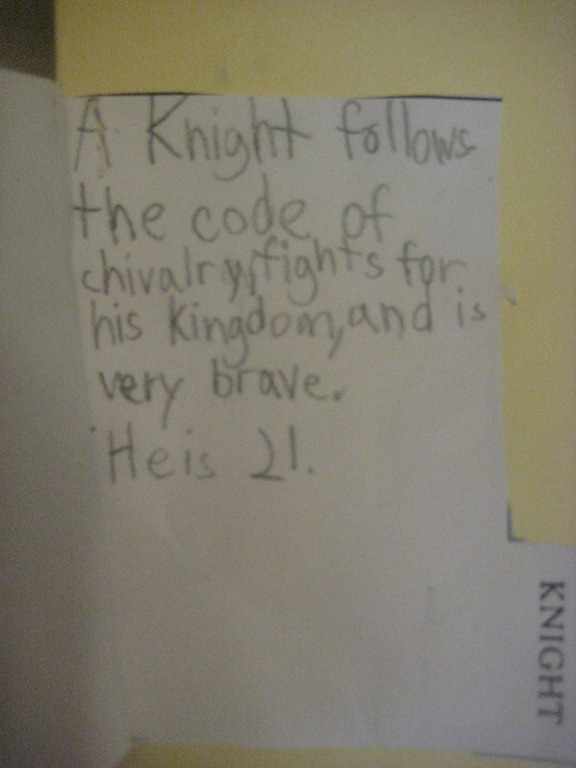 A Knight follows
the code of
chivalry, fights for
his kingdom, and is
very brave.
He is 21.
KNIGHT